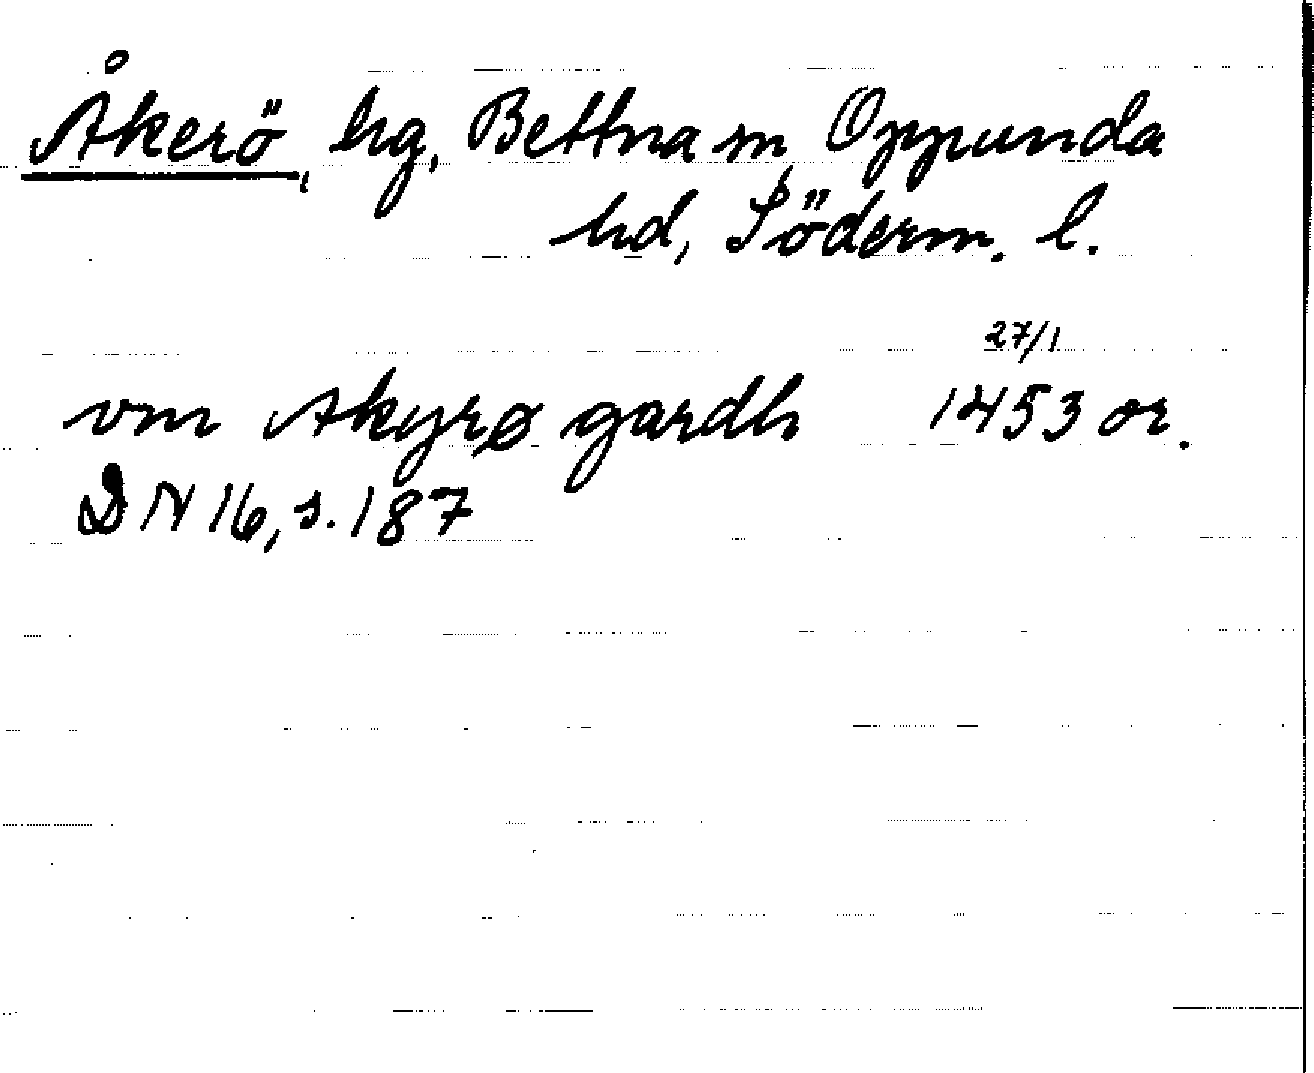 Åkerö, hg, Bettna sn Oppunda
hd, Söderm. l.
27/1
vm Akyrø gardh 1453 or.
DN 16, s. 187